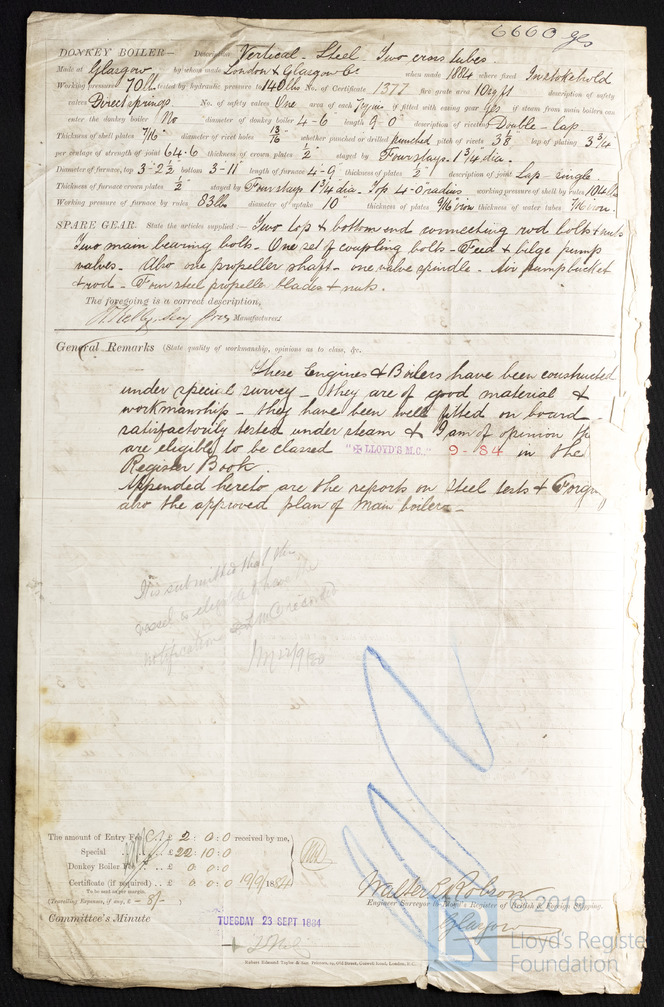 6660 gls
DONKEY BOILER— Description Vertical - Steel. Two cross tubes.
Made at Glasgow by whom made London & Glasgow Co when made 1884 where fixed In stokehold
Working pressure 70 lbs tested by hydraulic pressure to 140 lbs No. of Certificate 1377 fire grate area 10 sq ft description of safety
valves Direct springs No. of safety valves One area of each 7 sq ins if fitted with easing gear yes if steam from main boilers can
enter the donkey boiler No diameter of donkey boiler 4-6 length 9-0" description of riveting Double - Lap
Thickness of shell plates 7/16" diameter of rivet holes 13/16 whether punched or drilled punched pitch of rivets 3 1/8 lap of plating 3 3/4
per centage of strength of joint 64.6 thickness of crown plates 1/2" stayed by Four stays 1 3/4 dia.
Diameter of furnace, top 3-2 1/2 bottom 3-11 length of furnace 4-9 thickness of plates 1/2" description of joint Lap - single.
Thickness of furnace crown plates 1/2" stayed by Four stays 1 3/4 dia. Top 4-0 radius working pressure of shell by rules 104 lbs
Working pressure of furnace by rules 83 lbs diameter of uptake 10" thickness of plates iron thickness of water tubes iron.
SPARE GEAR. State the articles supplied:— Two top & bottom end connecting rod bolts & nuts
Two main bearing bolts - One set of coupling bolts - Feed & bilge pump
valves - Also one propeller shaft - one valve spindle - Air pump bucket
& rod - Four steel propeller blades & nuts.
The foregoing is a correct description,
Manufacturer
General Remarks (State quality of workmanship, opinions as to class, &c.
These Engines & Boilers have been constructed
under special survey - They are of good material &
workmanship - They have been well fitted on board -
satisfactorily tested under steam & I am of opinion
are eligible to be classed "✠ LLOYD'S M.C." 9-84 in the
Register Book.
Appended hereto are the reports on steel tests &
also the approved plan of main boilers -
It is submitted that this
vessel is eligible to have the
notification LMC recorded
The amount of Entry Fee .. £ 2 : 0 : 0 received by me,
Special .. £ 22 : 10 : 0
Donkey Boiler Fee .. £ 0 : 0 : 0
Certificate (if required) .. £ 0 : 0 : 0 19/9/1884
To be sent as per margin.
(Travelling Expenses, if any, £ - 8/- )
Walter L Robson
Engineer Surveyor to Lloyd's Register of British & Foreign Shipping.
Glasgow
Committee's Minute
TUESDAY 23 SEPT 1884
© 2019
Lloyd's Register
Foundation